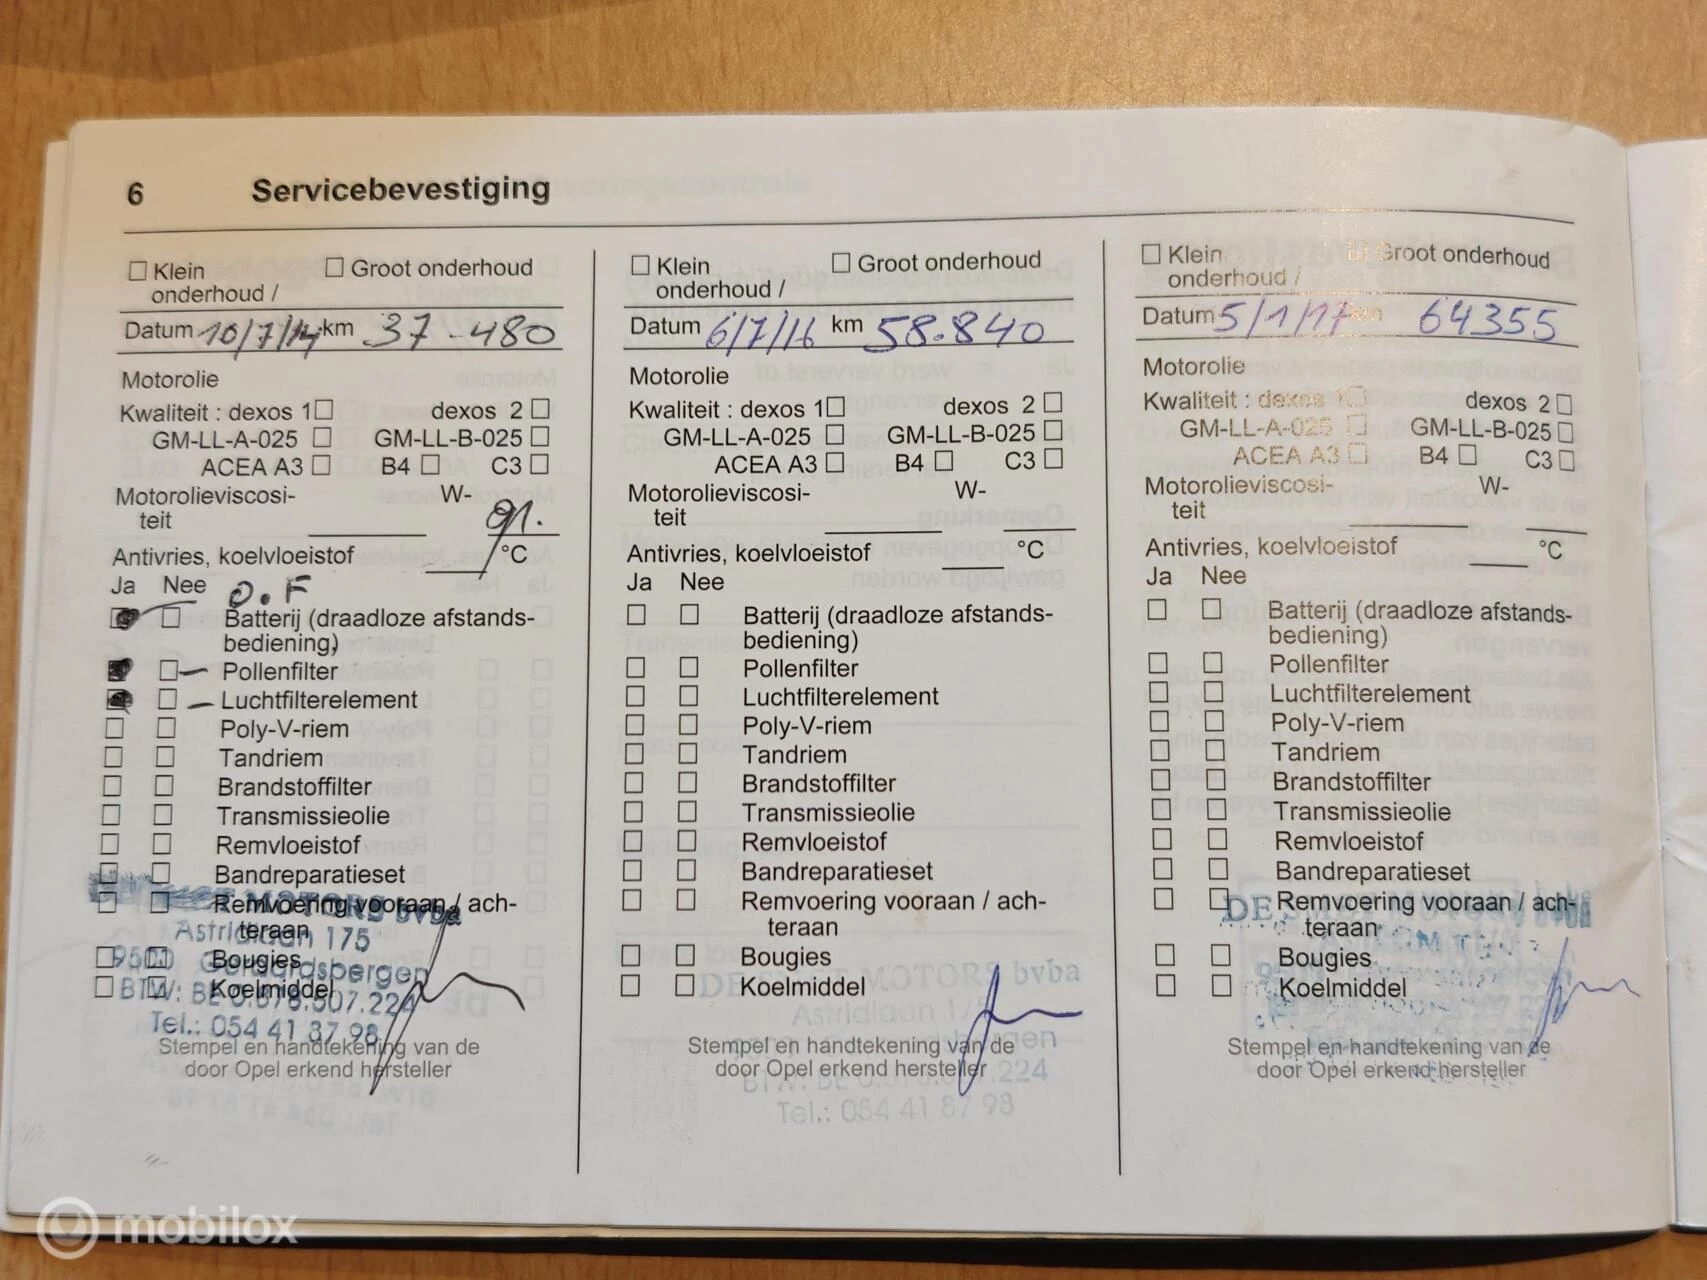 6 Servicebevestiging
☐ Klein onderhoud / ☐ Groot onderhoud
Datum 10/7/14 km 37-480
Motorolie
Kwaliteit : dexos 1 ☐ dexos 2 ☐
GM-LL-A-025 ☐ GM-LL-B-025 ☐
ACEA A3 ☐ B4 ☐ C3 ☐
Motorolieviscosi- W-
teit
Antivries, koelvloeistof °C
Ja Nee O.F
Batterij (draadloze afstands-
bediening)
Pollenfilter
Luchtfilterelement
Poly-V-riem
Tandriem
Brandstoffilter
Transmissieolie
Remvloeistof
Bandreparatieset
Remvoering vooraan / ach-
teraan
Bougies
Koelmiddel
MOTORS bvba
Astridlaan 175
9500 Geraardsbergen
Tel.: 054 41 87 98
Stempel en handtekening van de
door Opel erkend hersteller
☐ Klein onderhoud / ☐ Groot onderhoud
Datum 6/7/16 km 58.840
Motorolie
Kwaliteit : dexos 1 ☐ dexos 2 ☐
GM-LL-A-025 ☐ GM-LL-B-025 ☐
ACEA A3 ☐ B4 ☐ C3 ☐
Motorolieviscosi- W-
teit
Antivries, koelvloeistof °C
Ja Nee
Batterij (draadloze afstands-
bediening)
Pollenfilter
Luchtfilterelement
Poly-V-riem
Tandriem
Brandstoffilter
Transmissieolie
Remvloeistof
Bandreparatieset
Remvoering vooraan / ach-
teraan
Bougies
Koelmiddel
DE SMET MOTORS bvba
Astridlaan 175
Stempel en handtekening van de
door Opel erkend hersteller
Tel.: 054 41 87 98
☐ Klein onderhoud / ☐ Groot onderhoud
Datum 5/1/17 km 64355
Motorolie
Kwaliteit : dexos 1 ☐ dexos 2 ☐
GM-LL-A-025 ☐ GM-LL-B-025 ☐
ACEA A3 ☐ B4 ☐ C3 ☐
Motorolieviscosi- W-
teit
Antivries, koelvloeistof °C
Ja Nee
Batterij (draadloze afstands-
bediening)
Pollenfilter
Luchtfilterelement
Poly-V-riem
Tandriem
Brandstoffilter
Transmissieolie
Remvloeistof
Bandreparatieset
Remvoering vooraan / ach-
teraan
Bougies
Koelmiddel
DE SMET
Stempel en handtekening van de
door Opel erkend hersteller
mobilox